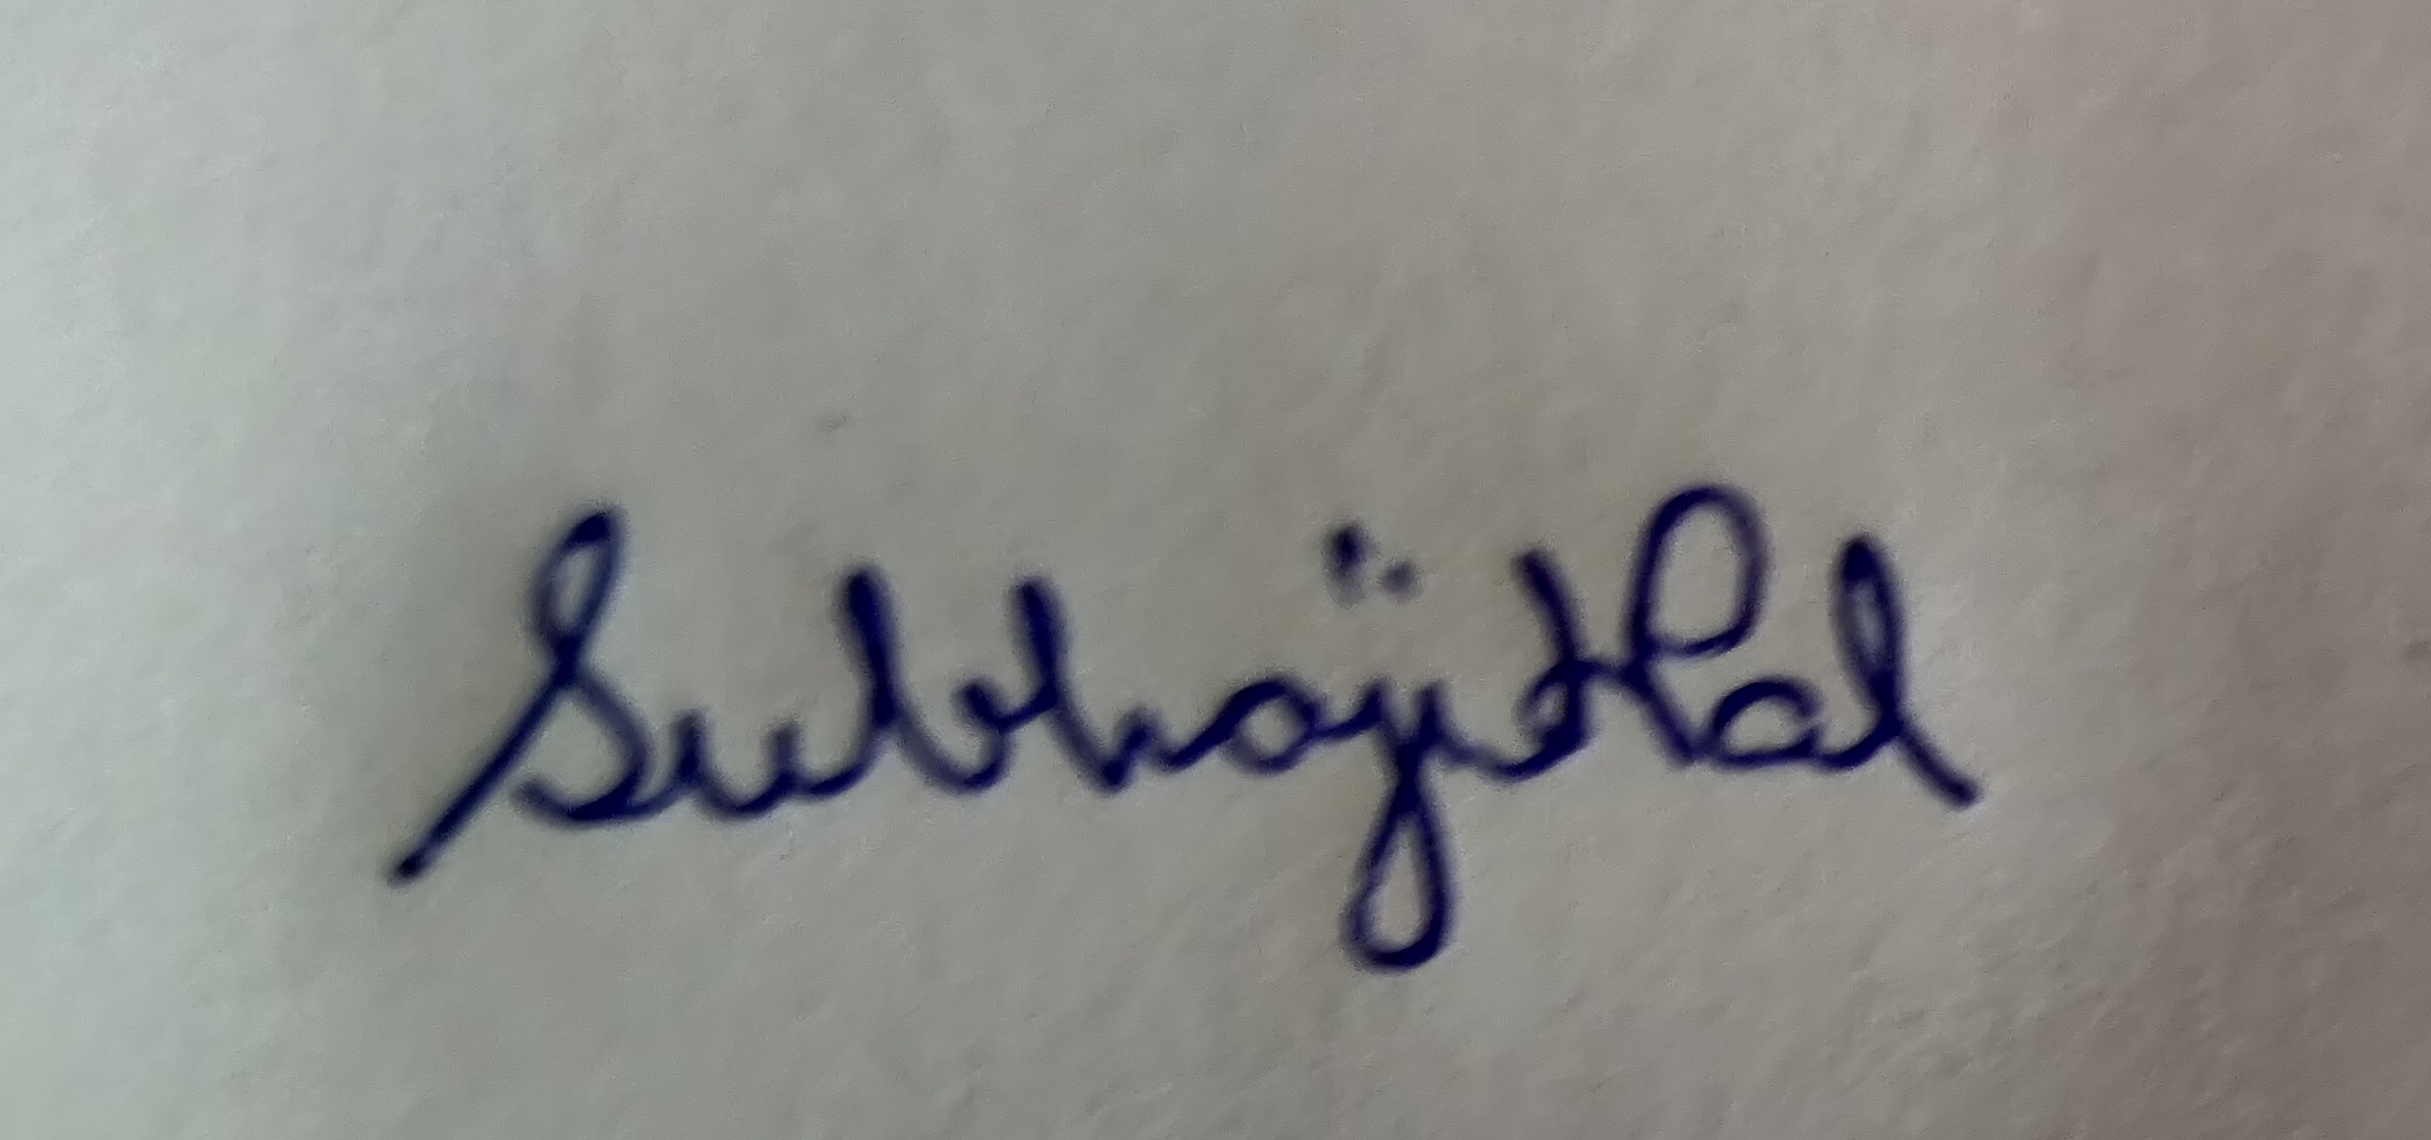 Subhojit Pal